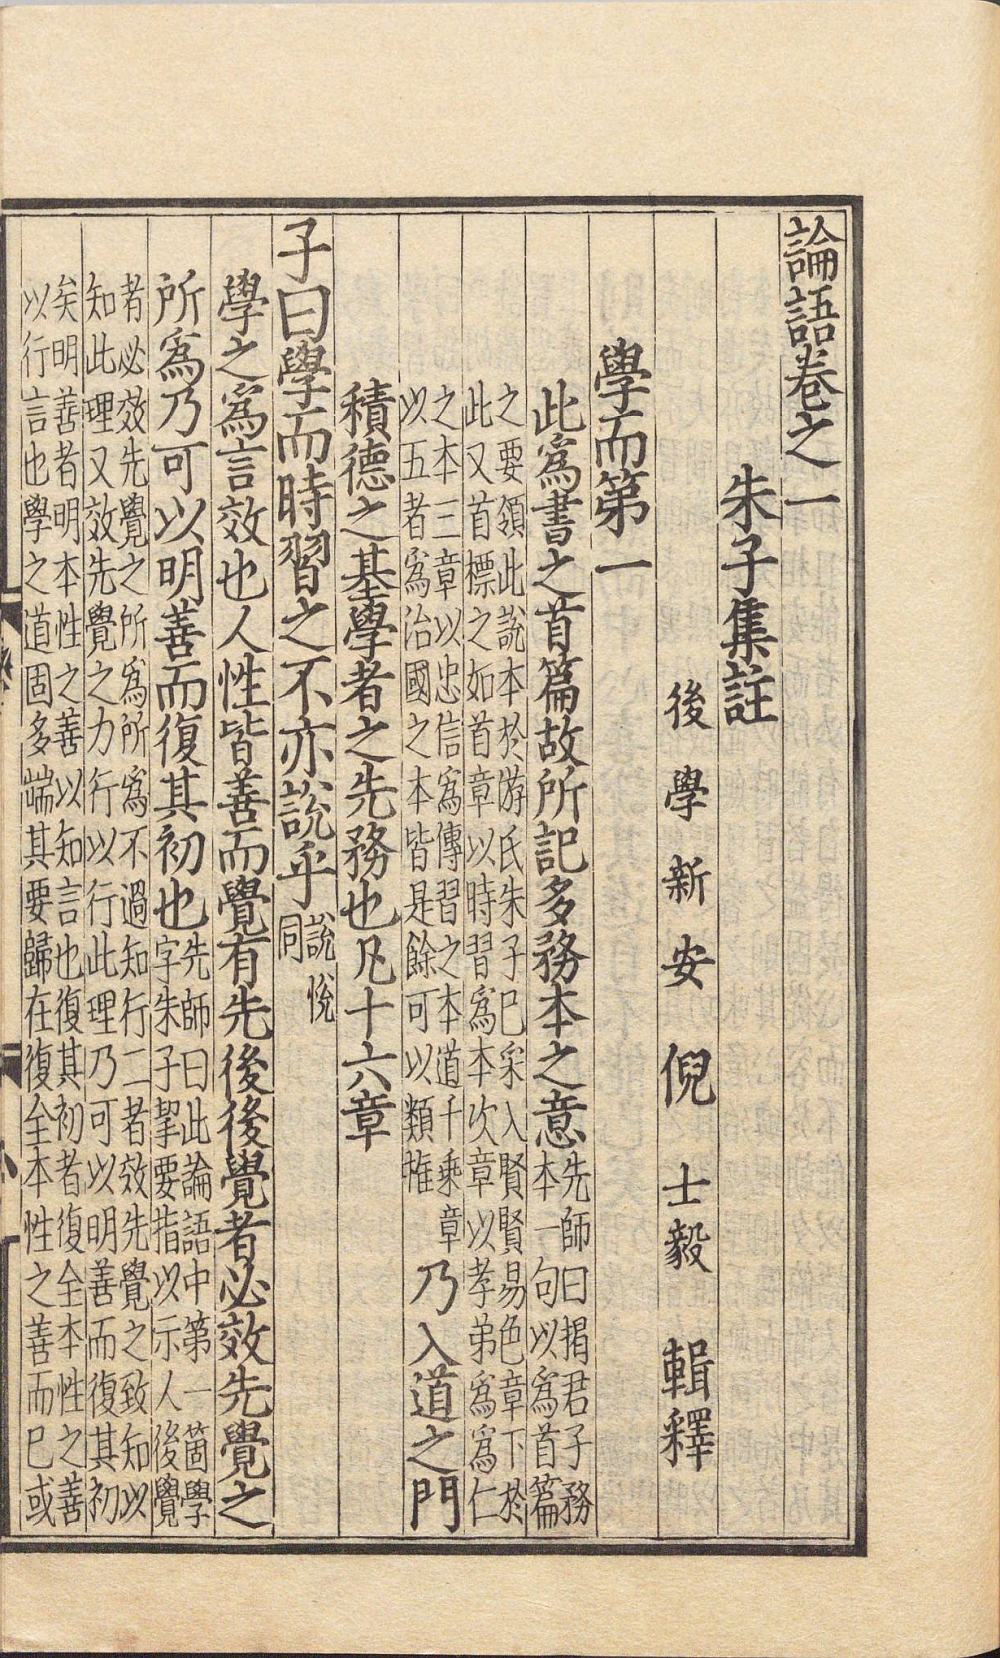 論語卷之一
朱子集註
後學新安倪士毅輯釋
學而第一
此爲書之首篇故所記多務本之意先師曰揭君子務
本一句以爲首篇
之要領此說本於游氏朱子已采入賢賢易色章下於
此又首標之如首章以時習爲本次章以孝弟爲爲仁
之本三章以忠信爲傳習之本道千乘章
以五者爲治國之本皆是餘可以類推乃入道之門
積德之基學者之先務也凡十六章
子曰學而時習之不亦說乎說悅
同
學之爲言效也人性皆善而覺有先後後覺者必效先覺之
所爲乃可以明善而復其初也先師曰此論語中第一箇學
字朱子挈要指以示人後覺
者必效先覺之所爲所爲不過知行二者效先覺之致知以
知此理又效先覺之力行以行此理乃可以明善而復其初
矣明善者明本性之善以知言也復其初者復全本性之善
以行言也學之道固多端其要歸在復全本性之善而已或